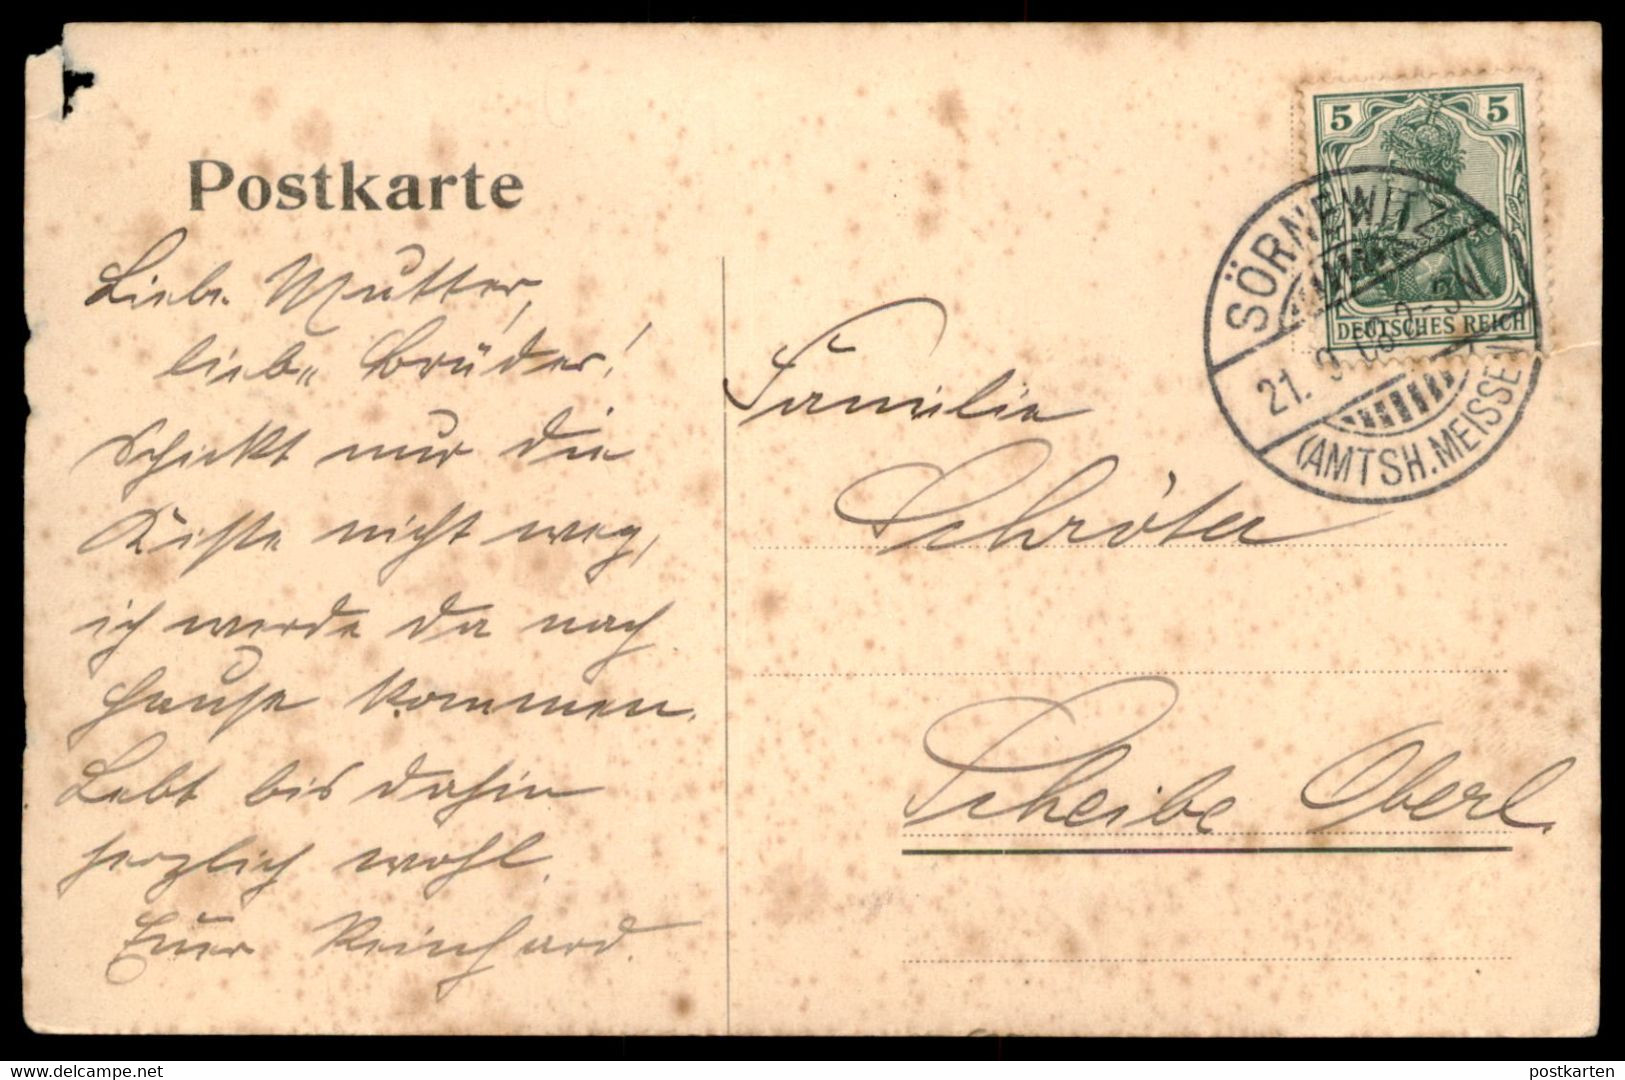 Postkarte
Liebe Mutter,
liebe Brüder!
Schickt nur die
Kiste nicht weg,
ich werde da nach
Hause kommen.
Lebt bis dahin
herzlich wohl.
Euer Reinhard.
5 5
DEUTSCHES REICH
SÖRNEWITZ
21. 9. 08 2-3N
(AMTSH. MEISSEN)
Familie
Schröter
Scheibe Oberl.
delcampe.net
postkarten